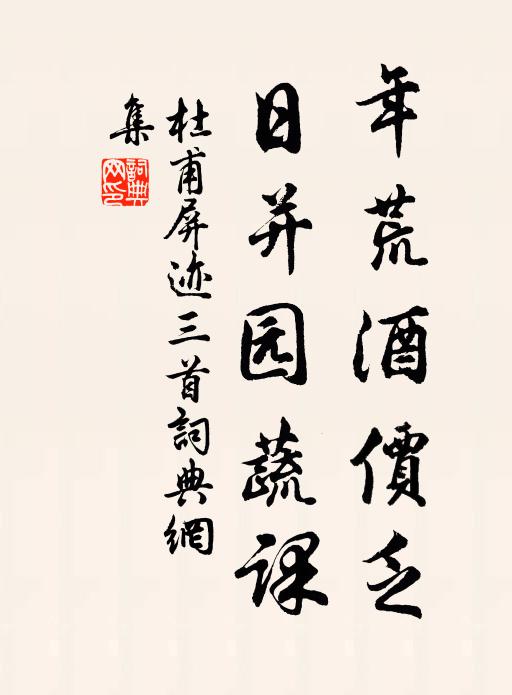 年荒酒價乏
日并园蔬课
杜甫屏迹三首詞典網
集
詞典網印